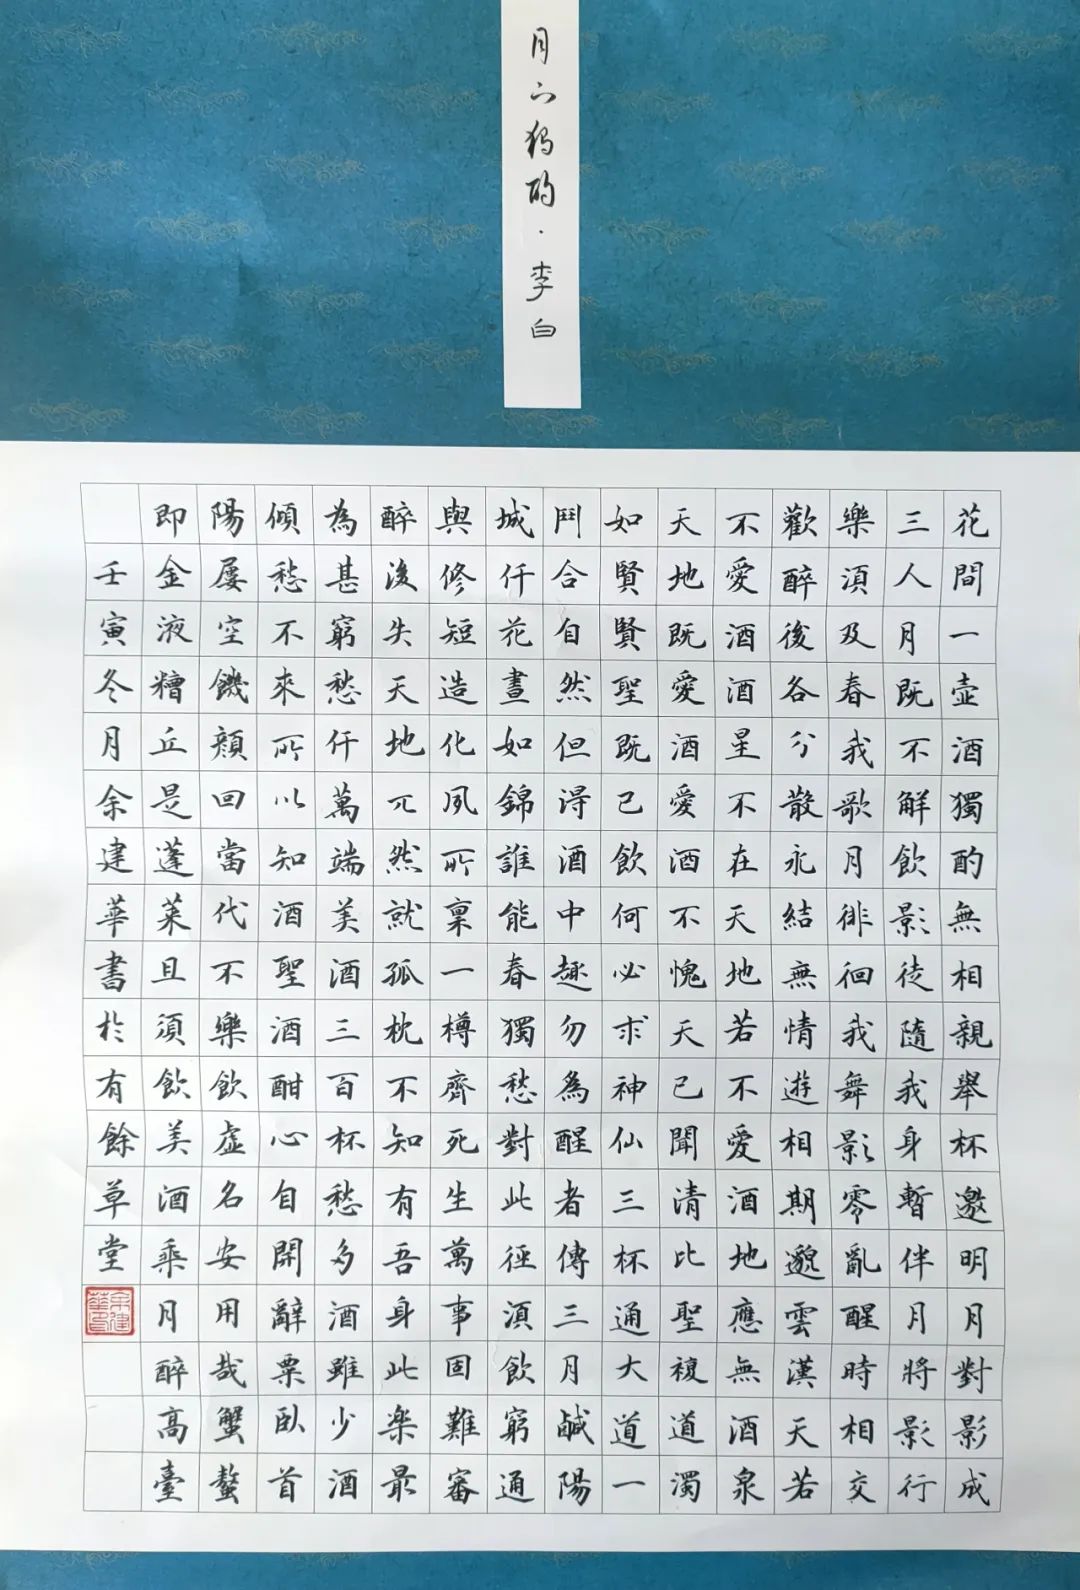 月下独酌·李白
花間一壺酒獨酌無相親舉杯邀明月對影成
三人月既不解飲影徒隨我身暫伴月將影行
樂須及春我歌月徘徊我舞影零亂醒時相交
歡醉後各分散永結無情遊相期邈雲漢天若
不愛酒酒星不在天地若不愛酒地應無酒泉
天地既愛酒愛酒不愧天已聞清比聖複道濁
如賢賢聖既已飲何必求神仙三杯通大道一
鬥合自然但得酒中趣勿為醒者傳三月鹹陽
城仟花晝如錦誰能春獨愁對此徑須飲窮通
與修短造化夙所稟一樽齊死生萬事固難審
醉後失天地兀然就孤枕不知有吾身此樂最
為甚窮愁仟萬端美酒三百杯愁多酒雖少酒
傾愁不來所以知酒聖酒酣心自開辭粟臥首
陽屢空饑顏回當代不樂飲虛名安用哉蟹螯
即金液糟丘是蓬萊且須飲美酒乘月醉高臺
壬寅冬月余建華書於有餘草堂
余建華印